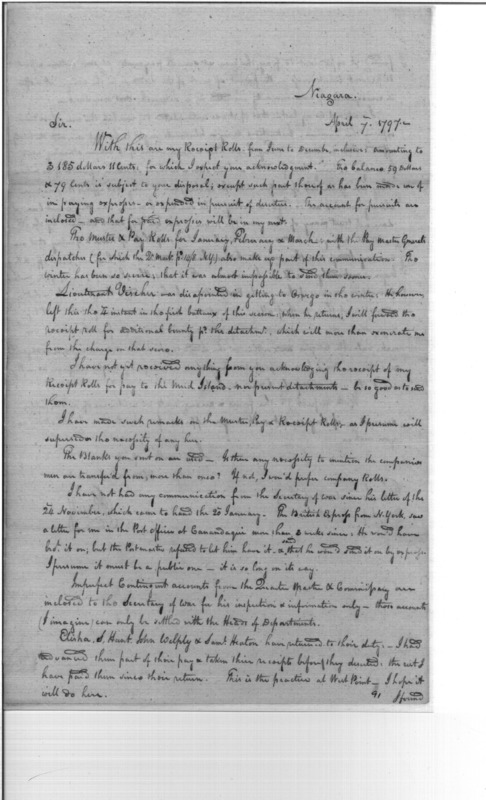 Niagara.
April 7. 1797
Sir.
With this are my Receipt Rolls, from June to December inclusive: amounting to
3185 dollars 11 Cents; for which I expect your acknowledgment. The balance 59 dollars
& 79 Cents is subject to your disposal; except such part thereof as has been made use of
in paying expresses or expended in pursuit of deserters. The account for pursuits are
inclosed — and that for paid expresses will be in my next.
The Muster & Pay Rolls for January, February & March; with the Pay Master Generals
dispatches (for which the Qr Mastr has my) also make up part of this communication. The
winter has been so severe; that it was almost impossible to send them sooner.
Lieutenant Visscher was disappointed in getting to Oswego in the winter. He however
left this the in the first batteaux of this season; when he returns, I will forward the
receipt roll for additional bounty pr. the detachmt, which will more than exonerate me
from the charge on that score.
I have not yet received anything from you acknowledging the receipt of my
Receipt Rolls for pay to the Mud Island, nor present detachments — be so good as to send
them.
I have made such remarks in the Muster, Pay & Receipt Rolls, as I presume will
supersede the necessity of any here.
The Blanks you sent on are used — Is there any necessity to mention the companies
men are transfer'd from, more than once? If not, I wou'd prefer company Rolls.
I have not had any communication from the Secretary of war since his letter of the
24 November, which came to hand the 20 January. The British Express from N. York, saw
a letter for me in the Post Office at Canandaqui more than 2 weeks since: He would have
bro't it on; but the Postmaster refused to let him have it, & said that he would send it on by express
I presume it must be a public one — it is so long on its way.
Imperfect Contingent accounts from the Quarter Master & Commissary are
inclosed to the Secretary of war for his inspection & information only — those accounts
(I imagine) can only be settled with the Heads of Departments.
Elisha S. Hunt, John Welply & Saml Horton have returned to their duty. — I had
advanced them part of their pay & taken their receipts before they deserted: the rest I
have paid them since their return. This is the practice at West Point — I hope it
will do here.
91 I send